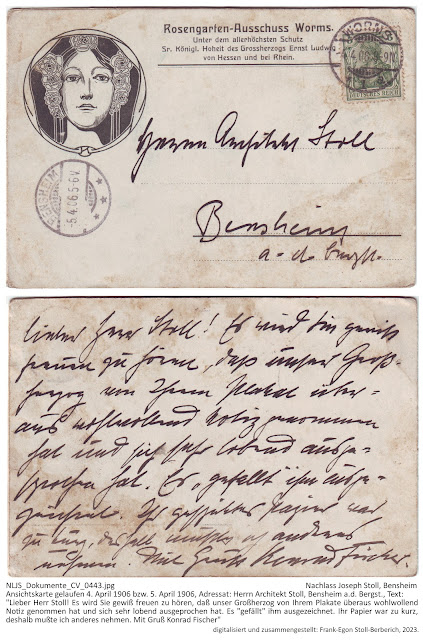 Rosengarten-Ausschuss Worms.
Unter dem allerhöchsten Schutz
Sr. Königl. Hoheit des Grossherzogs Ernst Ludwig
von Hessen und bei Rhein.
WORMS
4.06
DEUTSCHES REICH
BENSHEIM
-5.4.06.5-6V.
Herrn Architekt Stoll
Bensheim
a. d. Bergst.
Lieber Herr Stoll! Es wird Sie gewiß
freuen zu hören, daß unser Groß-
herzog von Ihrem Plakat über-
aus wohlwollend Notiz genommen
hat und sich sehr lobend ausge-
sprochen hat. Es "gefällt" ihm ausge-
zeichnet. Ihr Papier war
zu kurz, deshalb mußte ich anderes
nehmen. Mit Gruß Konrad Fischer
NLJS_Dokumente_CV_0443.jpg
Nachlass Joseph Stoll, Bensheim
Ansichtskarte gelaufen 4. April 1906 bzw. 5. April 1906, Adressat: Herrn Architekt Stoll, Bensheim a.d. Bergst., Text:
"Lieber Herr Stoll! Es wird Sie gewiß freuen zu hören, daß unser Großherzog von Ihrem Plakate überaus wohlwollend
Notiz genommen hat und sich sehr lobend ausgeprochen hat. Es "gefällt" ihm ausgezeichnet. Ihr Papier war zu kurz,
deshalb mußte ich anderes nehmen. Mit Gruß Konrad Fischer"
digitalisiert und zusammengestellt: Frank-Egon Stoll-Berberich, 2023.